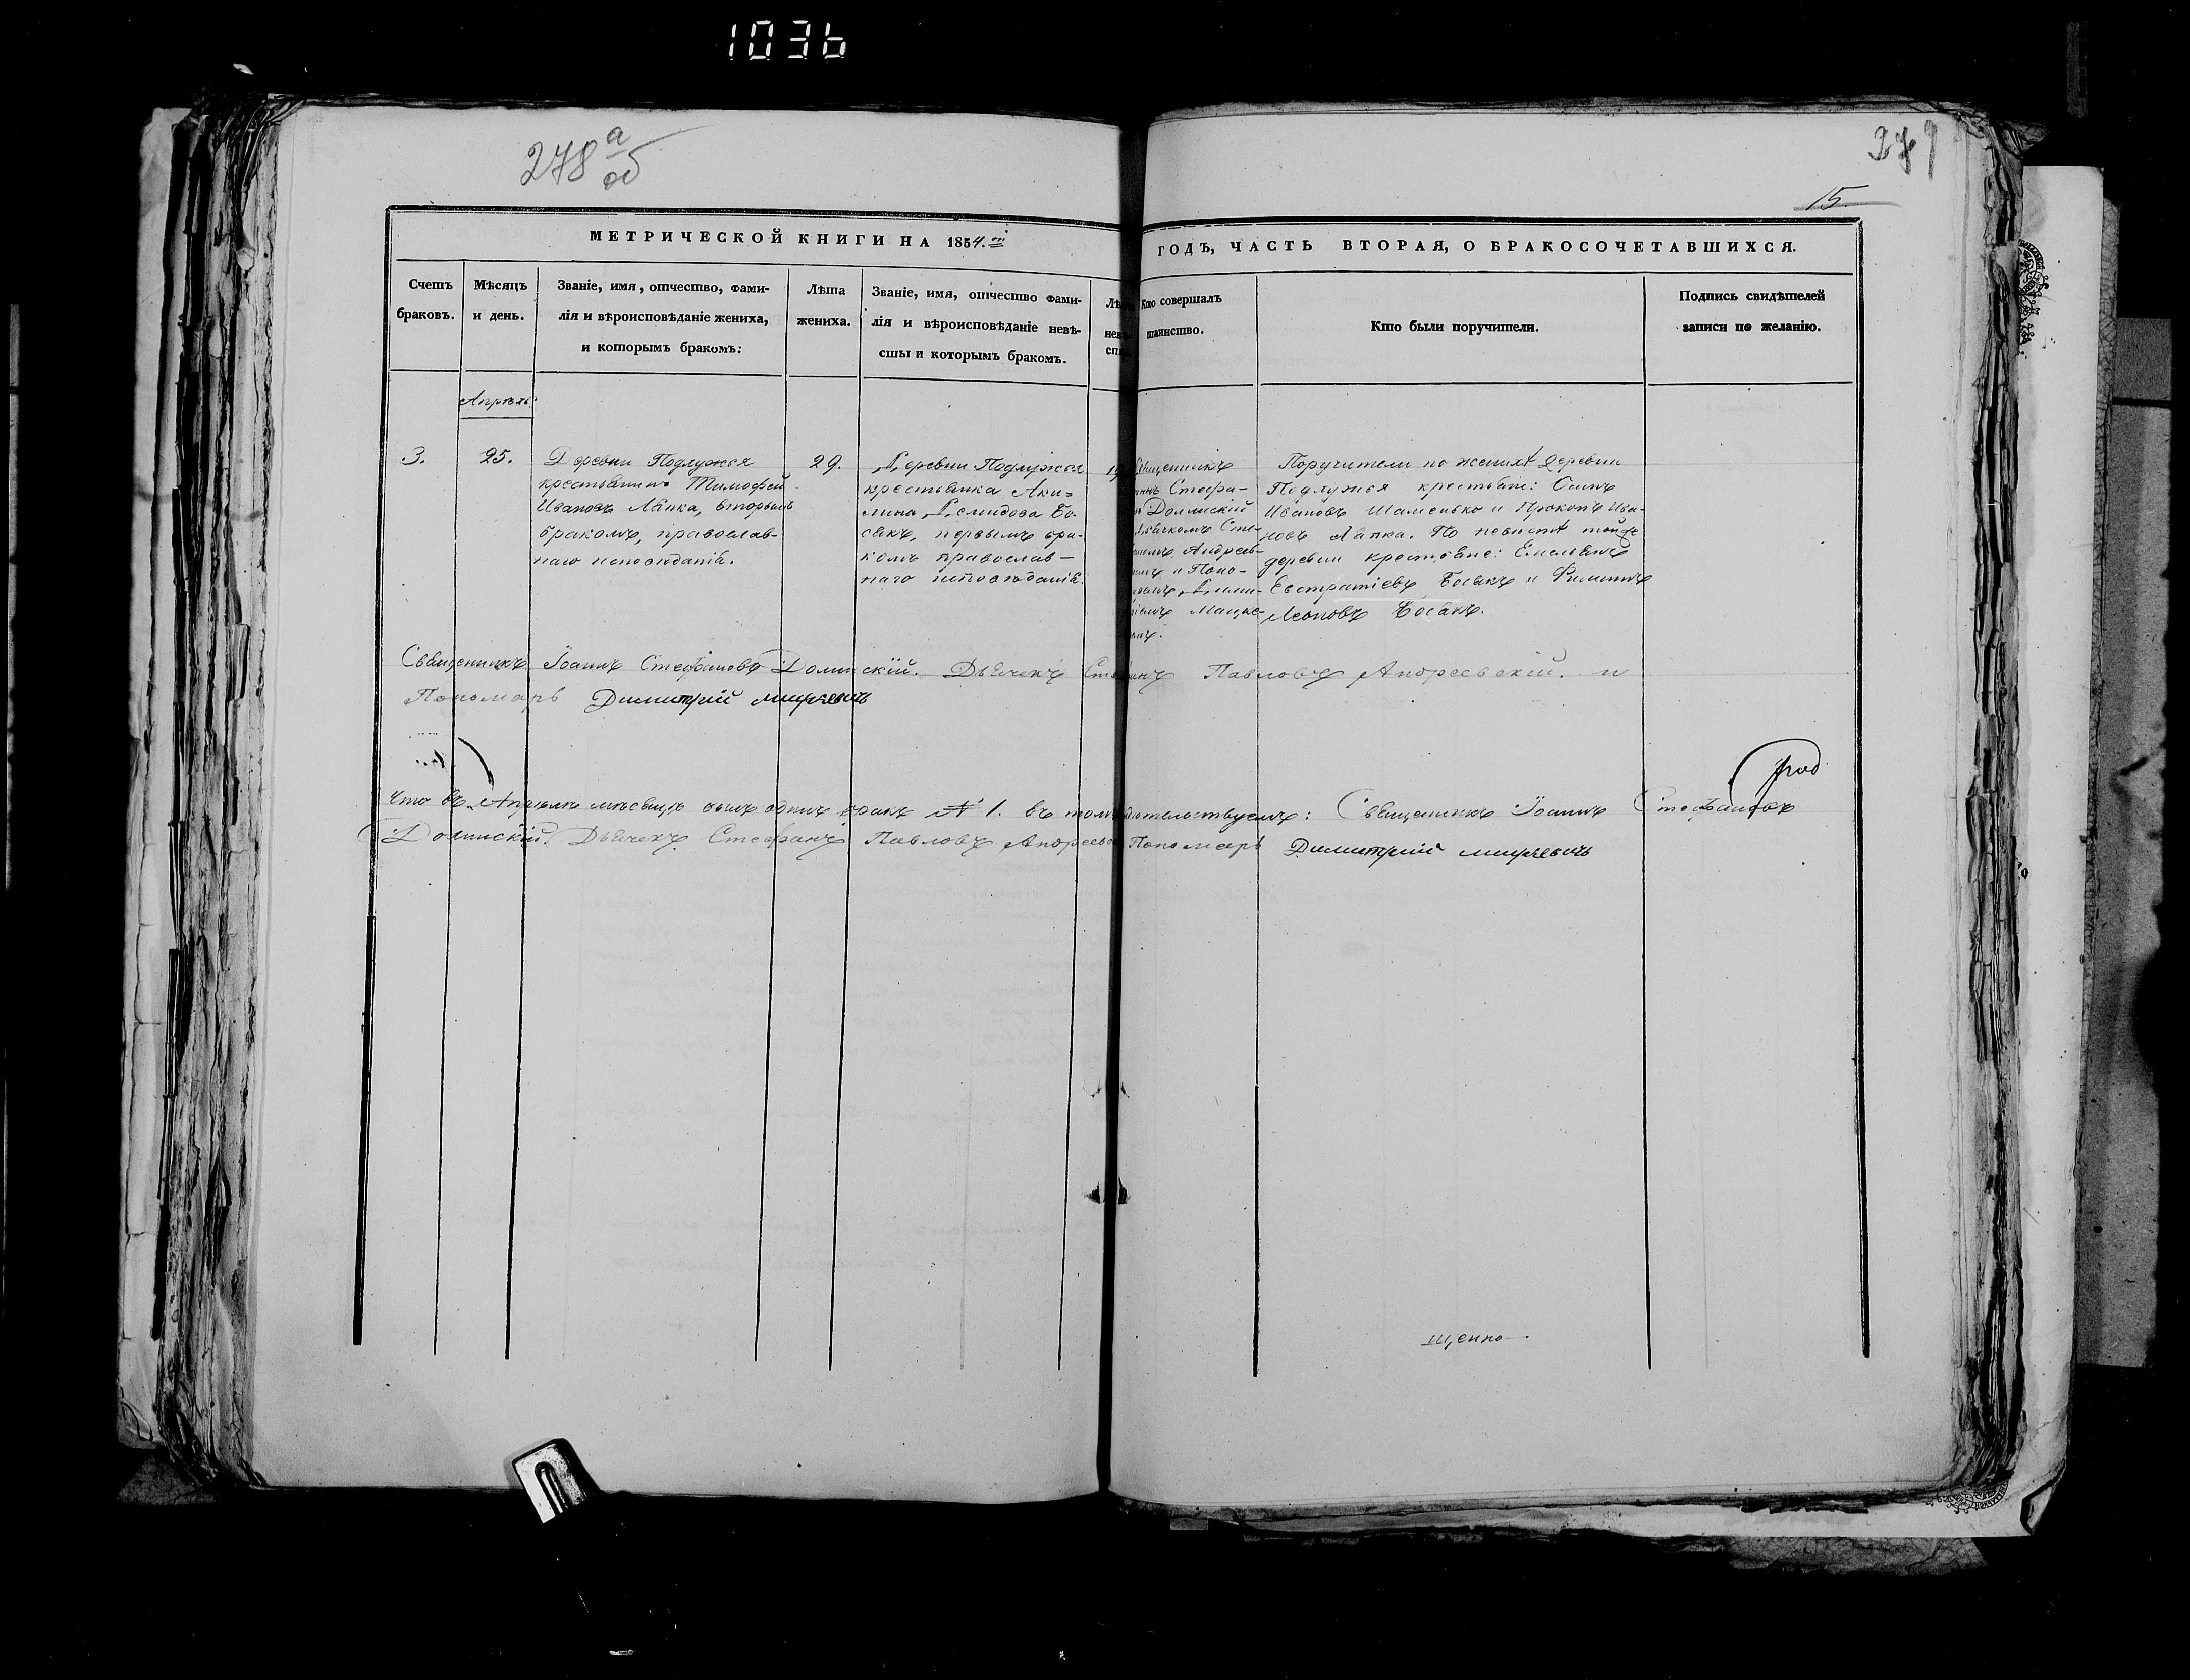 1036
278 а об
279
15
МЕТРИЧЕСКОЙ КНИГИ НА 1854.й
ГОДЪ, ЧАСТЬ ВТОРАЯ, О БРАКОСОЧЕТАВШИХСЯ.
Счетъ
браковъ.
Мѣсяцъ
и день.
Званіе, имя, отчество, фами-
лія и вѣроисповѣданіе жениха,
и которымъ бракомъ:
Лѣта
жениха.
Званіе, имя, отчество фами-
лія и вѣроисповѣданіе невѣ-
сты и которымъ бракомъ.
Кто совершалъ
таинство.
Кто были поручители.
Подпись свидѣтелей
записи по желанію.
Апрѣль
3.
25.
Деревни Подлужья
крестьянинъ Тимофей
Ивановъ Лапка, вторымъ
бракомъ, православ-
наго исповѣданія.
29.
Деревни Подлужья
крестьянка Аки-
лина Демидова Бо-
сакъ, первымъ бра-
комъ православ-
наго исповѣданія.
19
Священникъ
Стефа-
Долинскій
Дьячкомъ Сте-
Андреев-
и Поно-
Поручители по женихѣ деревни
Подлужья крестьяне: Осипъ
Ивановъ Шаменько и Прокопъ Ива-
новъ Лапка. По невѣстѣ той же
деревни крестьяне: Емельянъ
Евстратіевъ Босакъ и Филиппъ
Леоновъ Босакъ.
Священникъ Іоаннъ Стефановъ Долинскій. Дьячекъ Стефанъ Павловъ Андреевскій. и
Пономарь Димитрій
Что въ Апрѣлѣ мѣсяцѣ былъ одинъ бракъ № 1. въ томъ свидѣтельствуемъ: Священникъ Іоаннъ Стефановъ
Долинскій Дьячекъ Стефанъ Павловъ Пономарь Димитрій
щенно